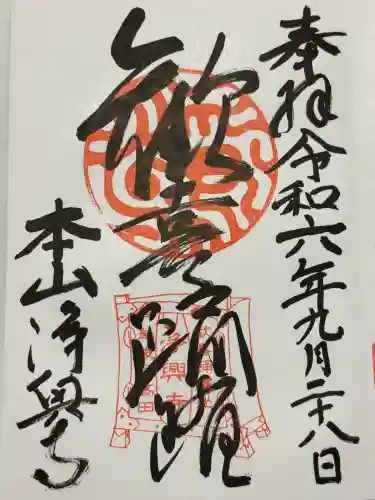 奉拝令和六年九月二十八日
歓喜踊躍
本山浄興寺